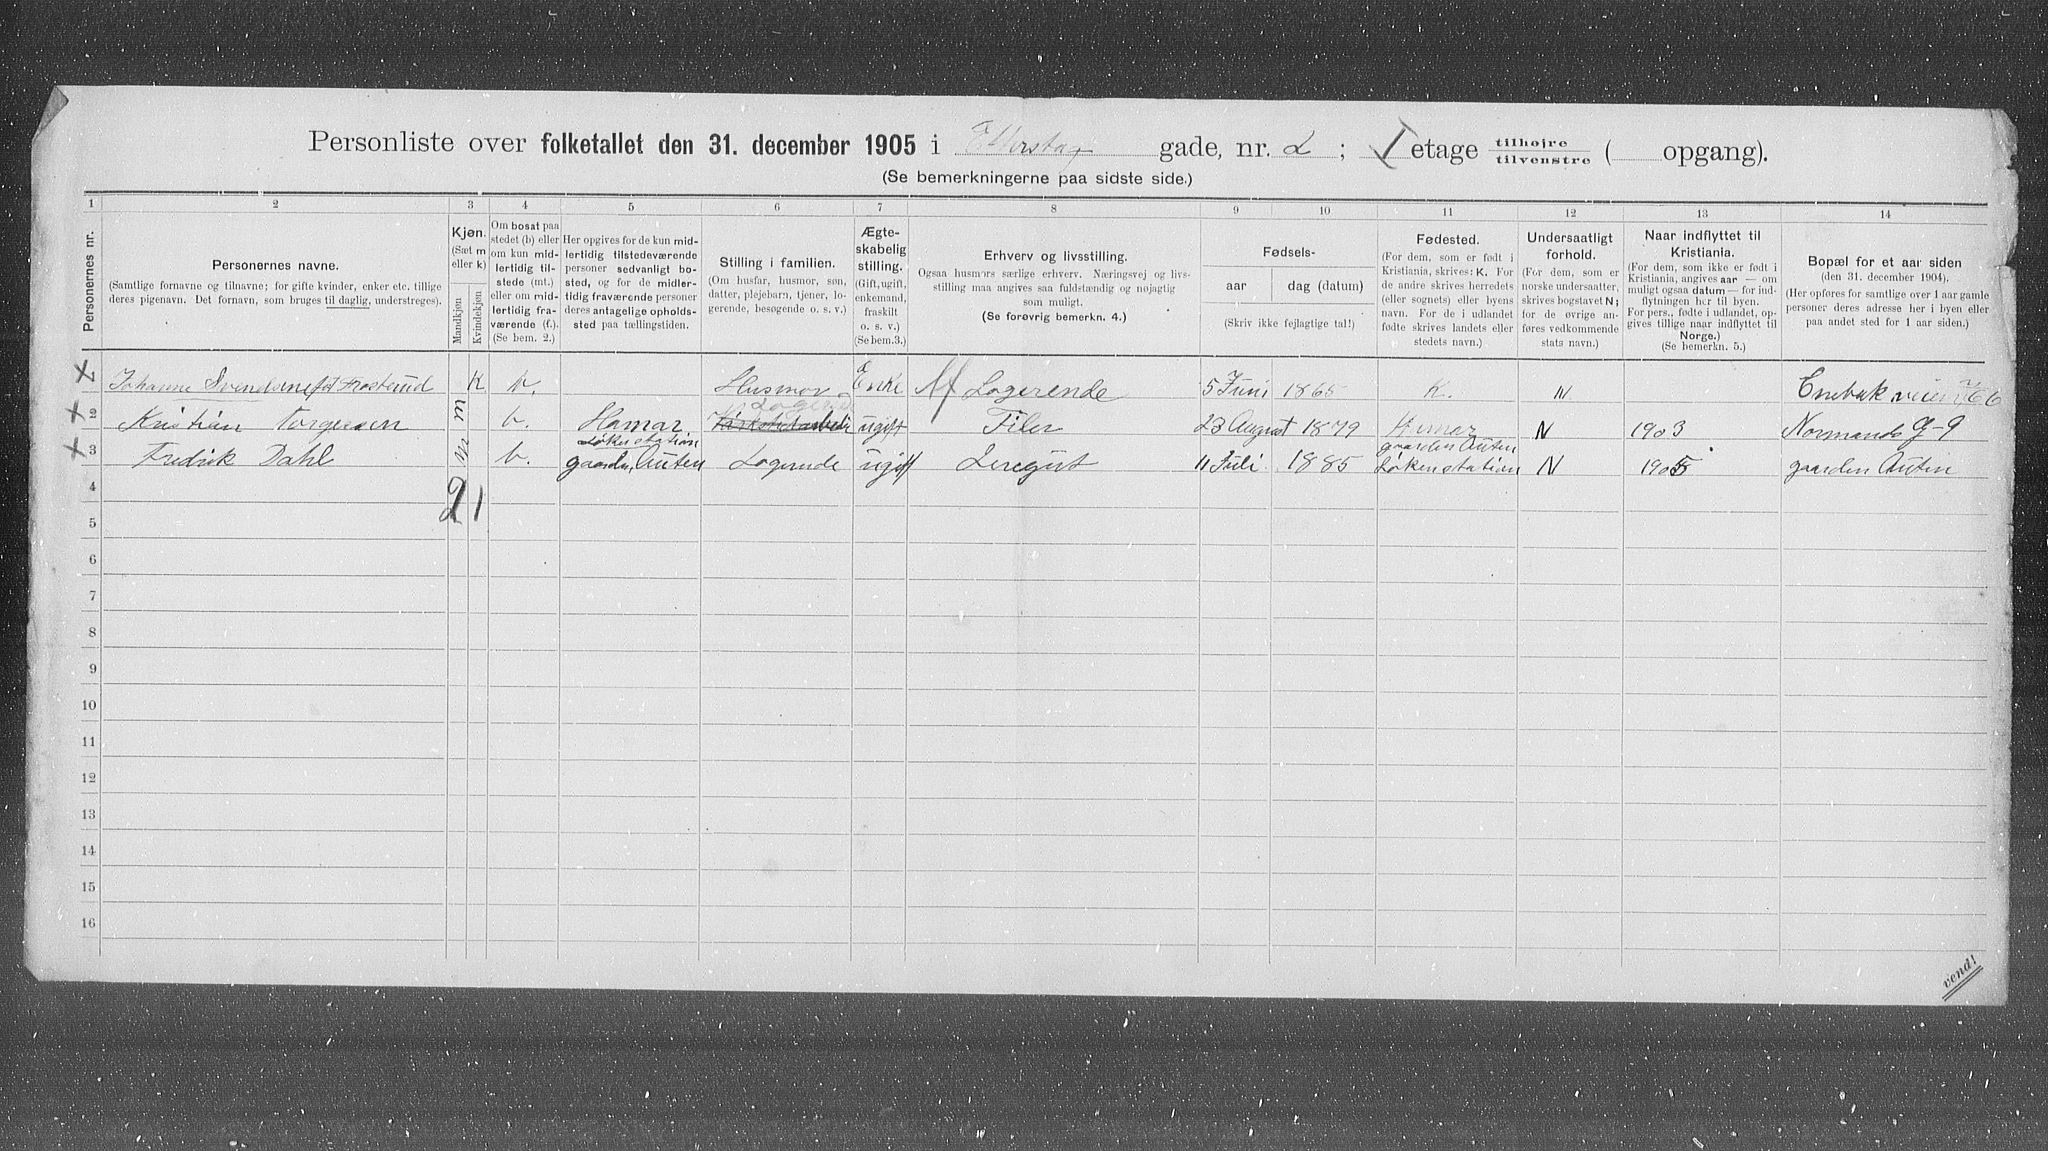 Personliste over folketallet den 31. december 1905 i Etterstad gade, nr. 2 ; I etage tilhøjre tilvenstre ( opgang).
(Se bemerkningerne paa sidste side.)
1 2 3 4 5 6 7 8 9 10 11 12 13 14
Personernes nr.
Personernes navne.
(Samtlige fornavne og tilnavne; for gifte kvinder, enker etc. tillige
deres pigenavn. Det fornavn, som bruges til daglig, understreges).
Kjøn.
(Sæt m
eller k)
Mandkjøn
Kvindekjøn
Om bosat paa
stedet (b) eller
om kun mid-
lertidig til-
stede (mt.)
eller om mid-
lertidig fra-
værende (f.).
(Se bem. 2.)
Her opgives for de kun mid-
lertidig tilstedeværende
personer sedvanligt bo-
sted, og for de midler-
tidig fraværende personer
deres antagelige opholds-
sted paa tællingstiden.
Stilling i familien.
(Om husfar, husmor, søn,
datter, plejebarn, tjener, lo-
gerende, besøgende o. s. v.)
Ægte-
skabelig
stilling.
(Gift, ugift,
enkemand,
fraskilt
o. s. v.)
(Se bem.3.)
Erhverv og livsstilling.
Ogsaa husmors særlige erhverv. Næringsvej og livs-
stilling maa angives saa fuldstændig og nøjagtig
som muligt.
(Se forøvrig bemerkn. 4.)
Fødsels-
aar dag (datum)
(Skriv ikke fejlagtige tal!)
Fødested.
(For dem, som er født i
Kristiania, skrives: K. For
de andre skrives herredets
(eller sognets) eller byens
navn. For de i udlandet
fødte skrives landets eller
stedets navn.)
Undersaatligt
forhold.
(For dem, som er
norske undersaatter,
skrives bogstavet N;
for de øvrige an-
føres vedkommende
stats navn.)
Naar indflyttet til
Kristiania.
(For dem, som ikke er født i
Kristiania, angives aar — om
muligt ogsaa datum — for ind-
flytningen her til byen.
For pers., fødte i udlandet, op-
gives tillige naar indflyttet til
Norge.)
(Se bemerkn. 5.)
Bopæl for et aar siden
(den 31. december 1904).
(Her opføres for samtlige over 1 aar gamle
personer deres adresse her i byen eller
paa andet sted for 1 aar siden.)
1 Johanne Svendsen født Frostrud K b. Husmor Enke Logerende 5 Juni 1865 K. N. Enebakveien 66
Logerende
2 Kristian Torgersen m b. Hamar ugift Filer 23 August 1879 Hamar N 1903 Normands G-9
Løken station gaarden Auten
3 Fredrik Dahl m b. gaarden Auten Logerende ugift Leregut 11 Juli 1885 Løkenstation N 1905 gaarden Autin
4 2 1
5
6
7
8
9
10
11
12
13
14
15
16
vend!